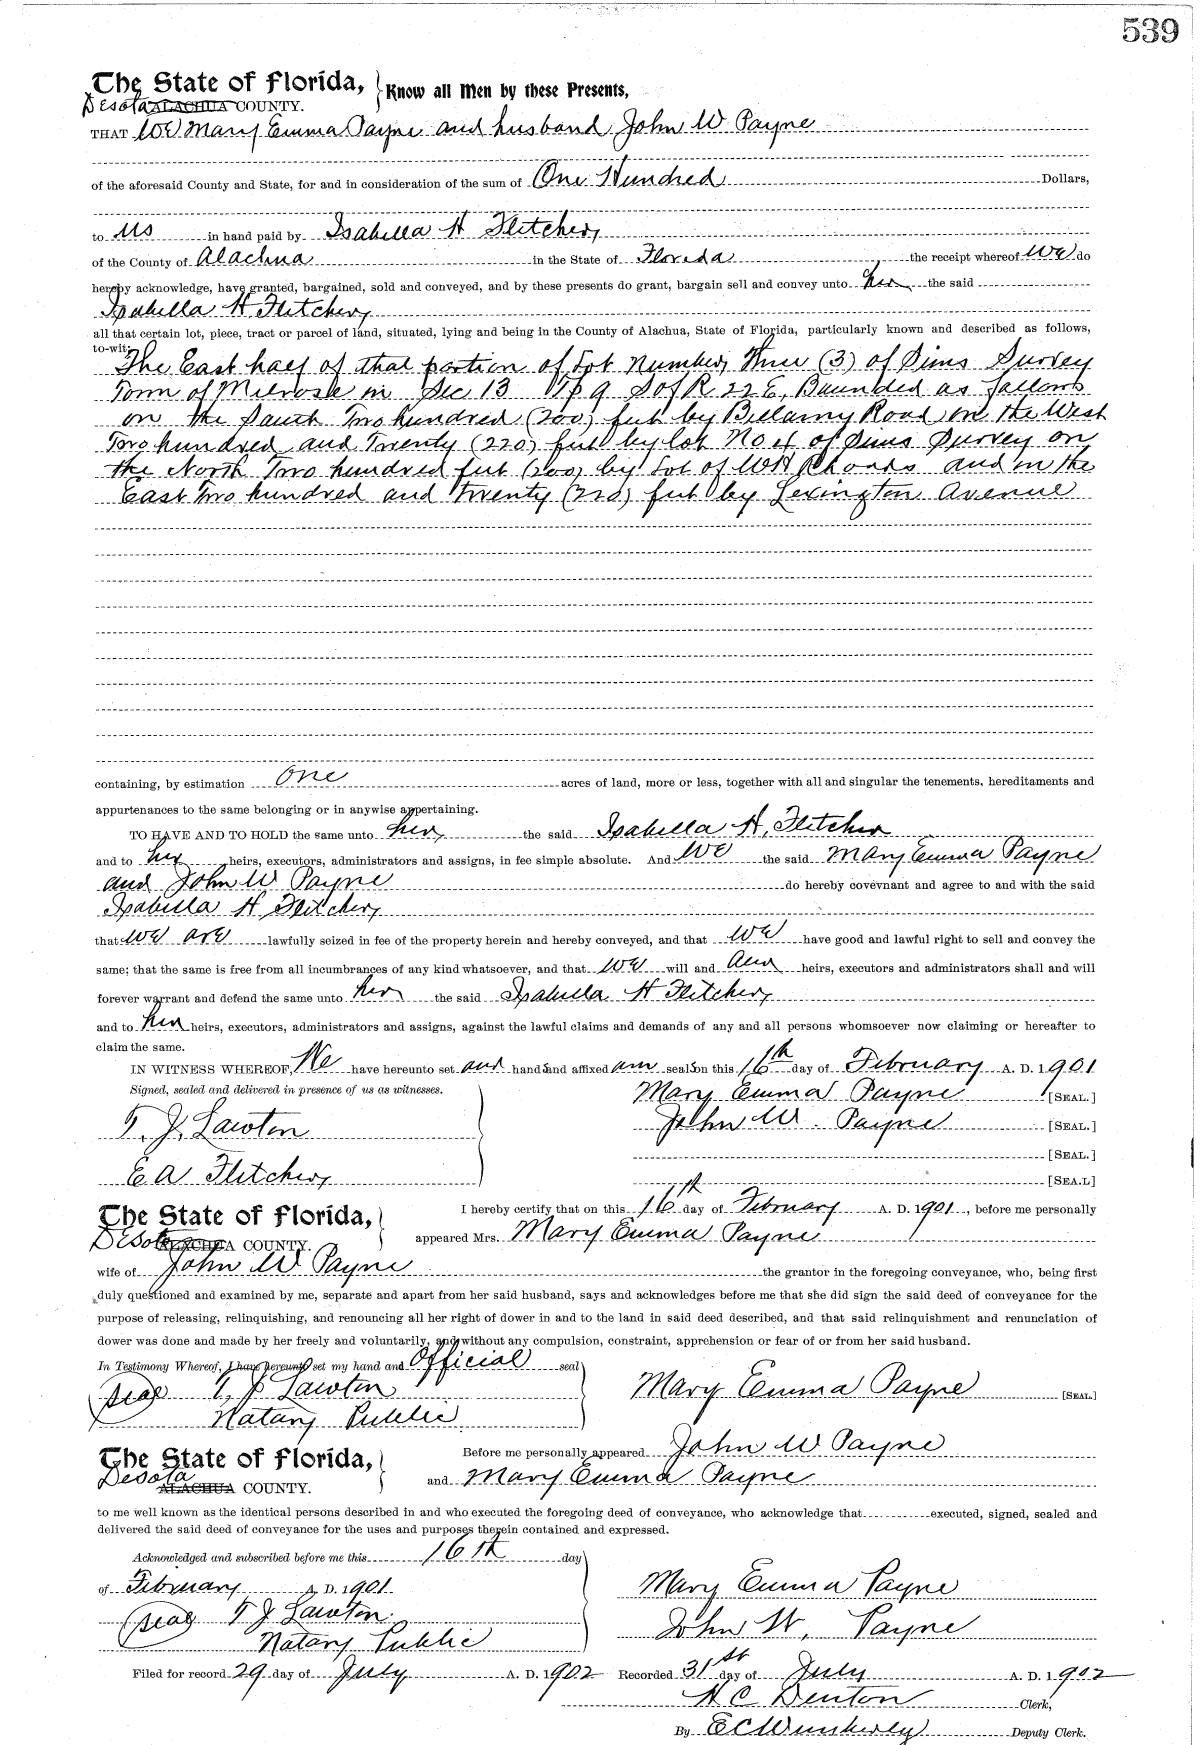 539
The State of Florida, Know all Men by these Presents,
Desota ALACHUA COUNTY.
THAT We Mary Emma Payne and husband John W Payne
of the aforesaid County and State, for and in consideration of the sum of One Hundred Dollars,
to us in hand paid by Isabella H Fletcher
of the County of Alachua in the State of Florida the receipt whereof We do
hereby acknowledge, have granted, bargained, sold and conveyed, and by these presents do grant, bargain sell and convey unto her the said
Isabella H Fletcher
all that certain lot, piece, tract or parcel of land, situated, lying and being in the County of Alachua, State of Florida, particularly known and described as follows,
to-wit:
The East half of that portion of Lot Number Three (3) of Sims Survey
Town of Melrose in Sec 13 Tp 9 S of R 22 E, Bounded as follows
on the South Two hundred (200) feet by Bellamy Road on the West
Two hundred and Twenty (220) feet by lot No 4 of Sims Survey on
the North Two hundred feet (200) by Lot of WH Rhoads and on the
East Two hundred and twenty (220) feet by Lexington Avenue
containing, by estimation One acres of land, more or less, together with all and singular the tenements, hereditaments and
appurtenances to the same belonging or in anywise appertaining.
TO HAVE AND TO HOLD the same unto her the said Isabella H, Fletcher
and to her heirs, executors, administrators and assigns, in fee simple absolute. And We the said Mary Emma Payne
and John W Payne do hereby covevnant and agree to and with the said
Isabella H Fletcher
that We are lawfully seized in fee of the property herein and hereby conveyed, and that We have good and lawful right to sell and convey the
same; that the same is free from all incumbrances of any kind whatsoever, and that We will and our heirs, executors and administrators shall and will
forever warrant and defend the same unto her the said Isabella H Fletcher
and to her heirs, executors, administrators and assigns, against the lawful claims and demands of any and all persons whomsoever now claiming or hereafter to
claim the same.
IN WITNESS WHEREOF, We have hereunto set our hands and affixed our seals on this 16th day of February A. D. 1901
Signed, sealed and delivered in presence of us as witnesses. Mary Emma Payne [SEAL.]
T. J. Lawton John W. Payne [SEAL.]
[SEAL.]
E A Fletcher [SEA.L]
The State of Florida, I hereby certify that on this 16th day of February A. D. 1901, before me personally
Desota ALACHUA COUNTY. appeared Mrs. Mary Emma Payne
wife of John W Payne the grantor in the foregoing conveyance, who, being first
duly questioned and examined by me, separate and apart from her said husband, says and acknowledges before me that she did sign the said deed of conveyance for the
purpose of releasing, relinquishing, and renouncing all her right of dower in and to the land in said deed described, and that said relinquishment and renunciation of
dower was done and made by her freely and voluntarily, and without any compulsion, constraint, apprehension or fear of or from her said husband.
In Testimony Whereof, I have hereunto set my hand and Official seal
seal T. J Lawton Mary Emma Payne [SEAL.]
Notary Public
The State of Florida, Before me personally appeared John W Payne
Desota ALACHUA COUNTY. and Mary Emma Payne
to me well known as the identical persons described in and who executed the foregoing deed of conveyance, who acknowledge that executed, signed, sealed and
delivered the said deed of conveyance for the uses and purposes therein contained and expressed.
Acknowledged and subscribed before me this 16th day
of February A. D. 1901 Mary Emma Payne
seal T J Lawton John W, Payne
Notary Public
Filed for record 29 day of July A. D. 1902 Recorded 31st day of July A. D. 1902
H C Denton Clerk,
By E C Wimberly Deputy Clerk.